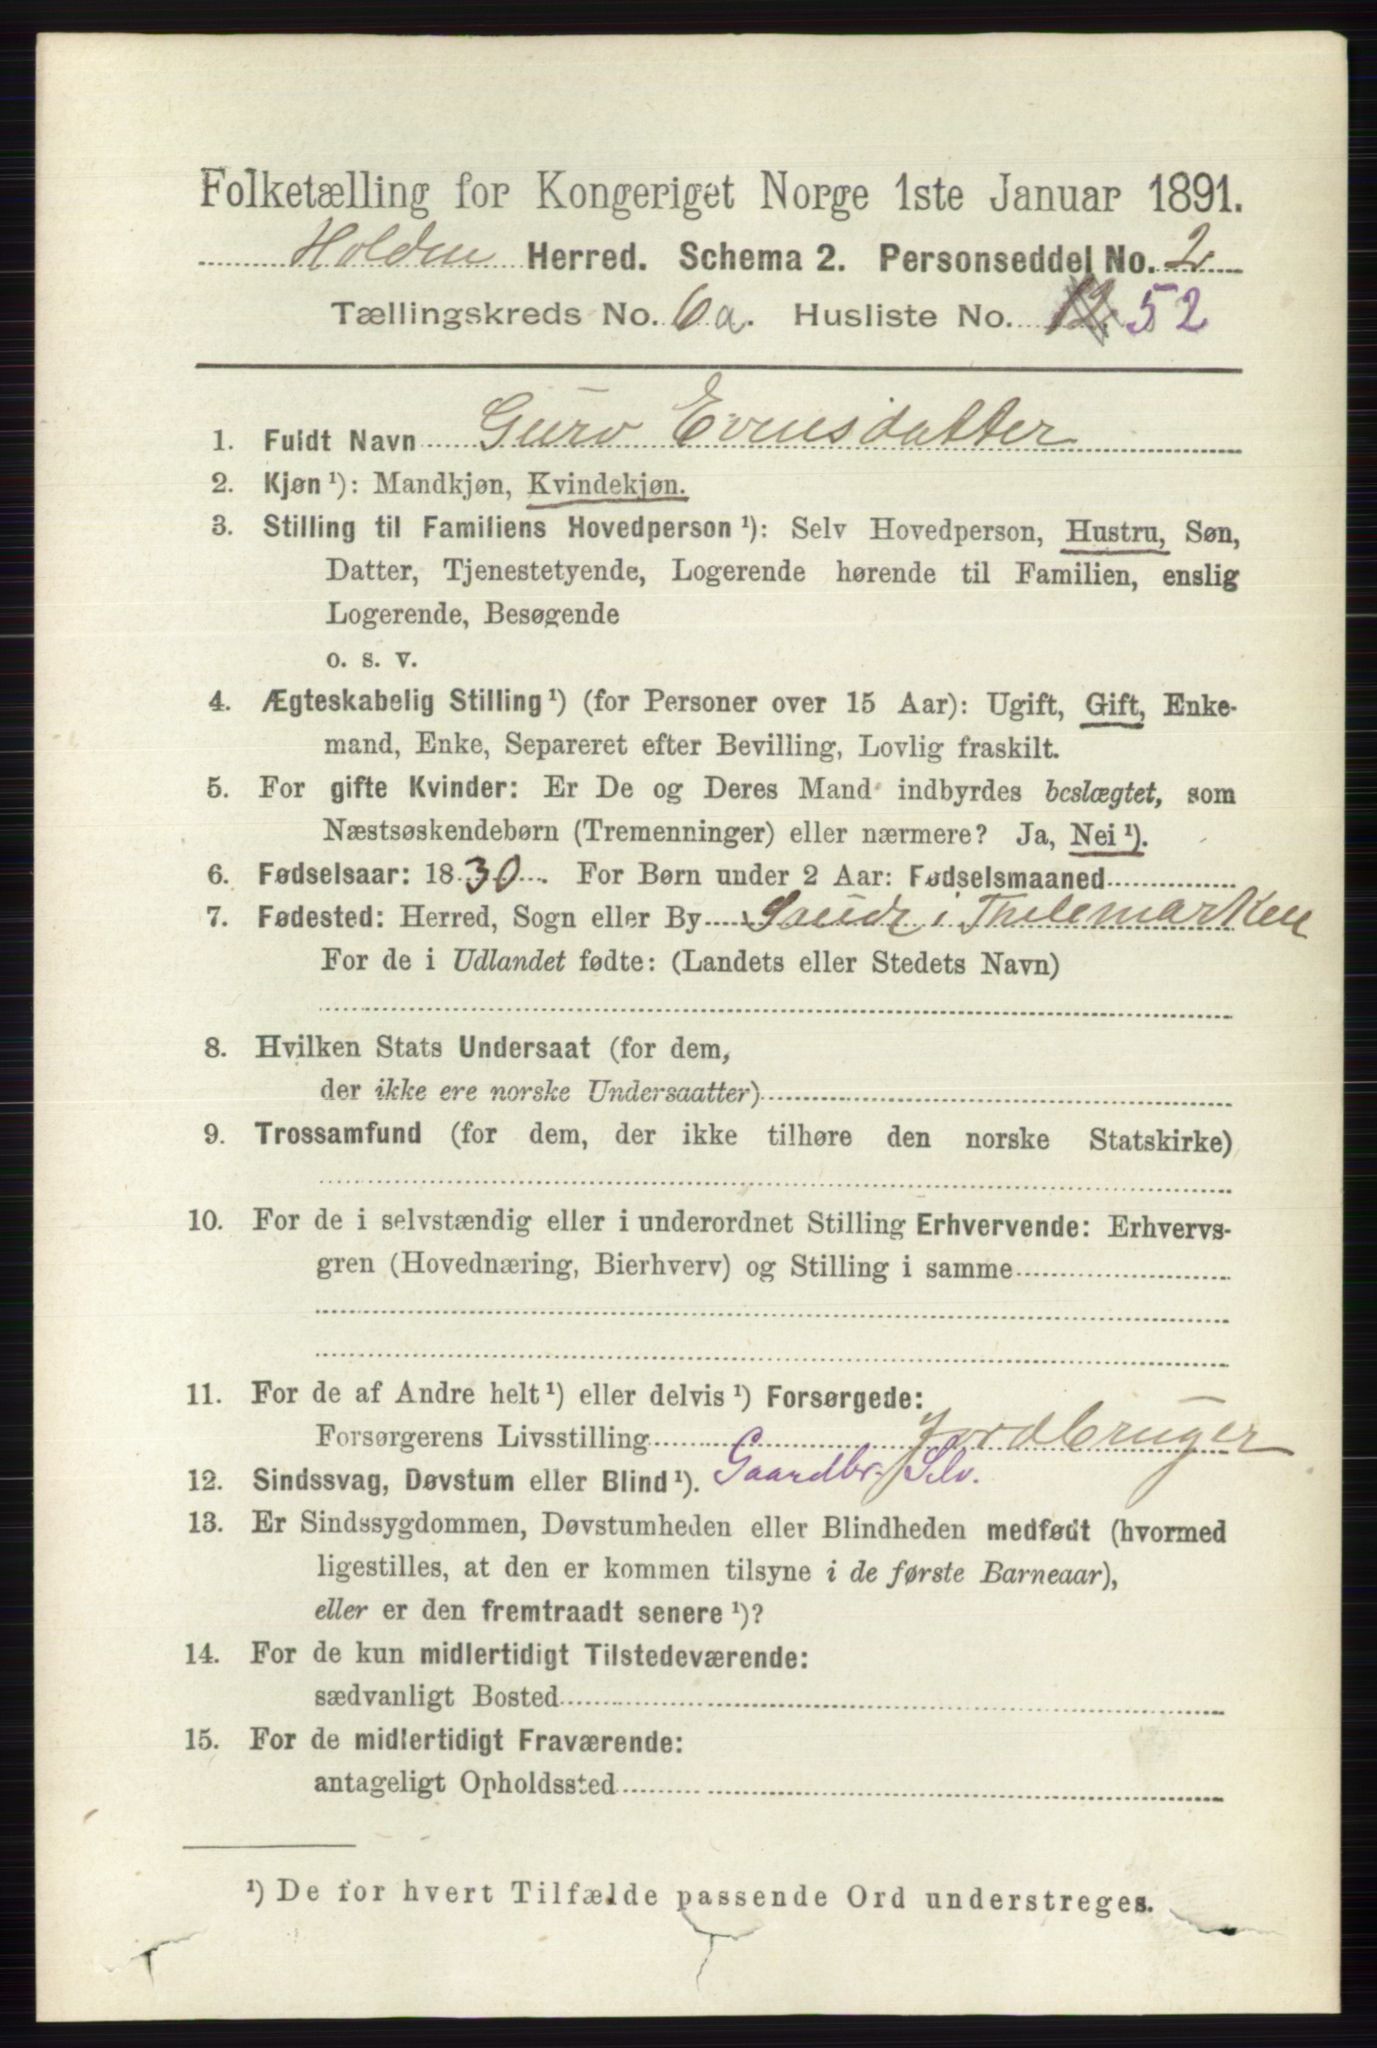 Folketælling for Kongeriget Norge 1ste Januar 1891.
Holden Herred. Schema 2. Personseddel No. 2
Tællingskreds No. 6a. Husliste No. 12. 52
1. Fuldt Navn Guro Evensdatter
2. Kjøn ¹): Mandkjøn, Kvindekjøn.
3. Stilling til Familiens Hovedperson ¹): Selv Hovedperson, Hustru, Søn,
Datter, Tjenestetyende, Logerende hørende til Familien, enslig
Logerende, Besøgende
o. s. v.
4. Ægteskabelig Stilling ¹) (for Personer over 15 Aar): Ugift, Gift, Enke-
mand, Enke, Separeret efter Bevilling, Lovlig fraskilt.
5. For gifte Kvinder: Er De og Deres Mand indbyrdes beslægtet, som
Næstsøskendebørn (Tremenninger) eller nærmere? Ja, Nei ¹).
6. Fødselsaar: 1830. For Børn under 2 Aar: Fødselsmaaned
7. Fødested: Herred, Sogn eller By i Thelemarken
For de i Udlandet fødte: (Landets eller Stedets Navn)
8. Hvilken Stats Undersaat (for dem,
der ikke ere norske Undersaatter)
9. Trossamfund (for dem, der ikke tilhøre den norske Statskirke)
10. For de i selvstændig eller i underordnet Stilling Erhvervende: Erhvervs-
gren (Hovednæring, Bierhverv) og Stilling i samme
11. For de af Andre helt ¹) eller delvis ¹) Forsørgede:
Forsørgerens Livsstilling Jordbruger
12. Sindssvag, Døvstum eller Blind ¹). Gaardbr. Selv.
13. Er Sindssygdommen, Døvstumheden eller Blindheden medfødt (hvormed
ligestilles, at den er kommen tilsyne i de første Barneaar),
eller er den fremtraadt senere ¹)?
14. For de kun midlertidigt Tilstedeværende:
sædvanligt Bosted
15. For de midlertidigt Fraværende:
antageligt Opholdssted
¹) De for hvert Tilfælde passende Ord understreges.